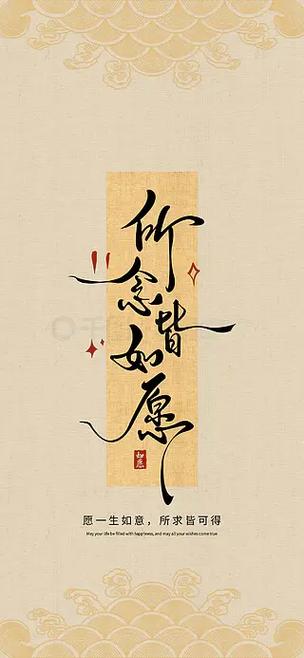 所念皆如愿
如愿
愿一生如意，所求皆可得
May your life be filled with happiness, and may all your wishes come true